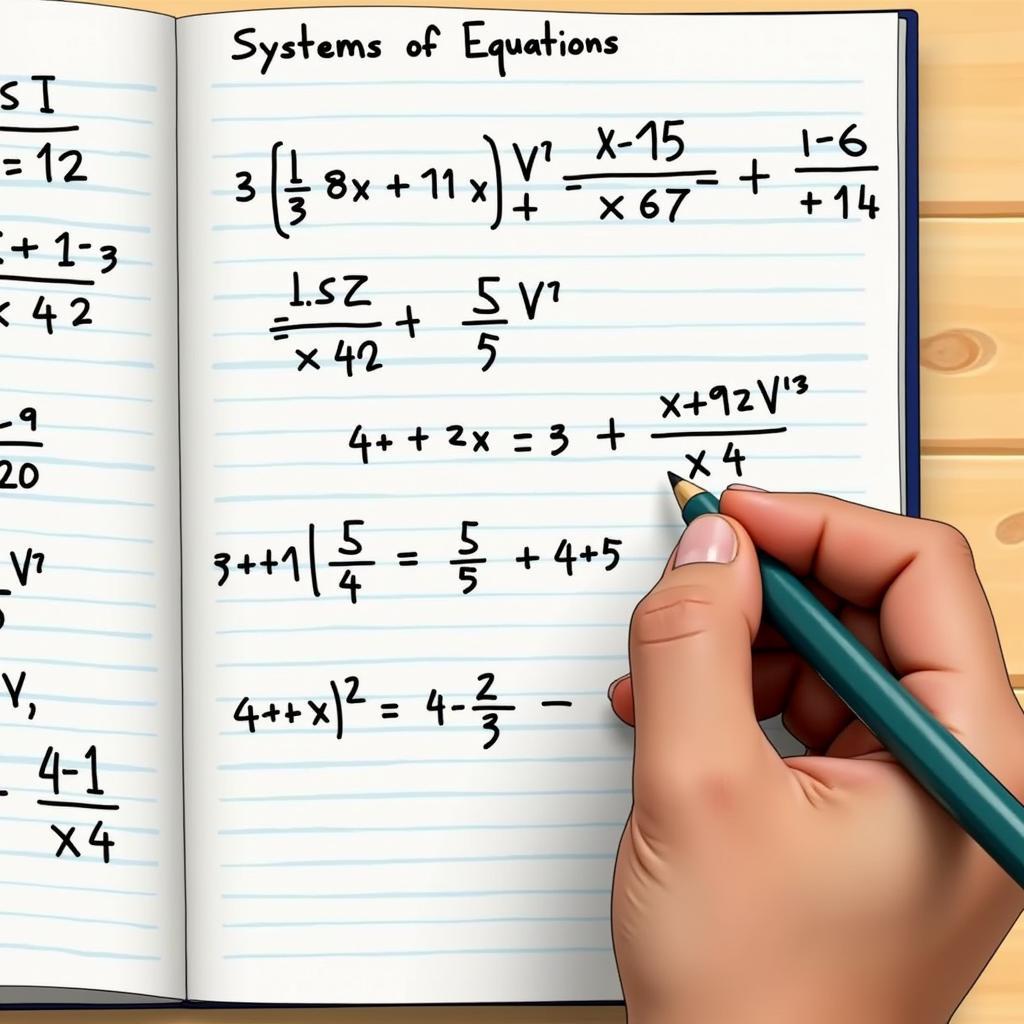 S I
= 12
+ 1-3
x 42
-9
20
V?
V,
4-1
x4
Systems of Equations
3 (1/3 8x + 11 x) V?/+ = x-15/x 67 = + 1-6/+14
= 1.SZ/x 42 + 5/5 V?
4+ + 2x = 3 + x+92V13/x 4
3++1(5/4 = 5/5 + 4+5
4++x)² = 4-2/3 −